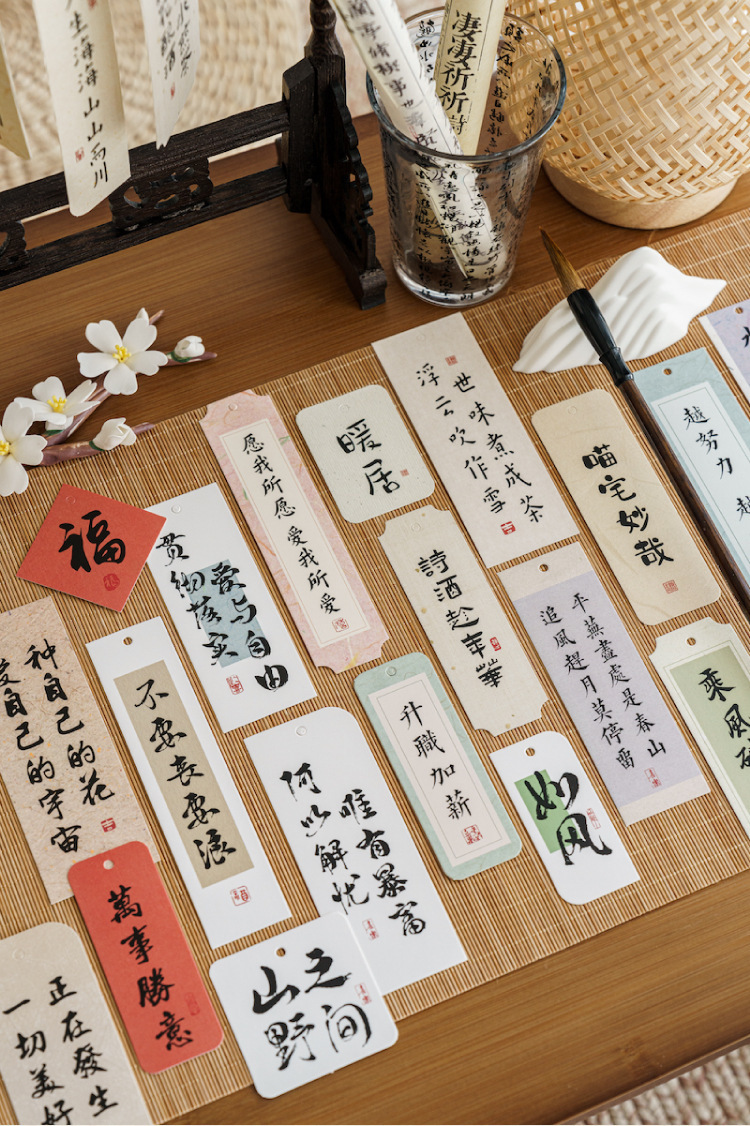 生海海山山而川
凄凄祈祈詩
愿我所愿 爱我所爱
暖居
浮云吹作雪
世味煮成茶
喵宅妙哉
越努力 越
福
贯彻落实
爱与自由
詩酒趁年華
追風趕月莫停留
平蕪盡處是春山
乘風破
种自己的花
爱自己的宇宙
不要丧要浪
何以解忧
唯有暴富
升職加薪
如风
萬事勝意
山野
之间
一切美好
正在發生